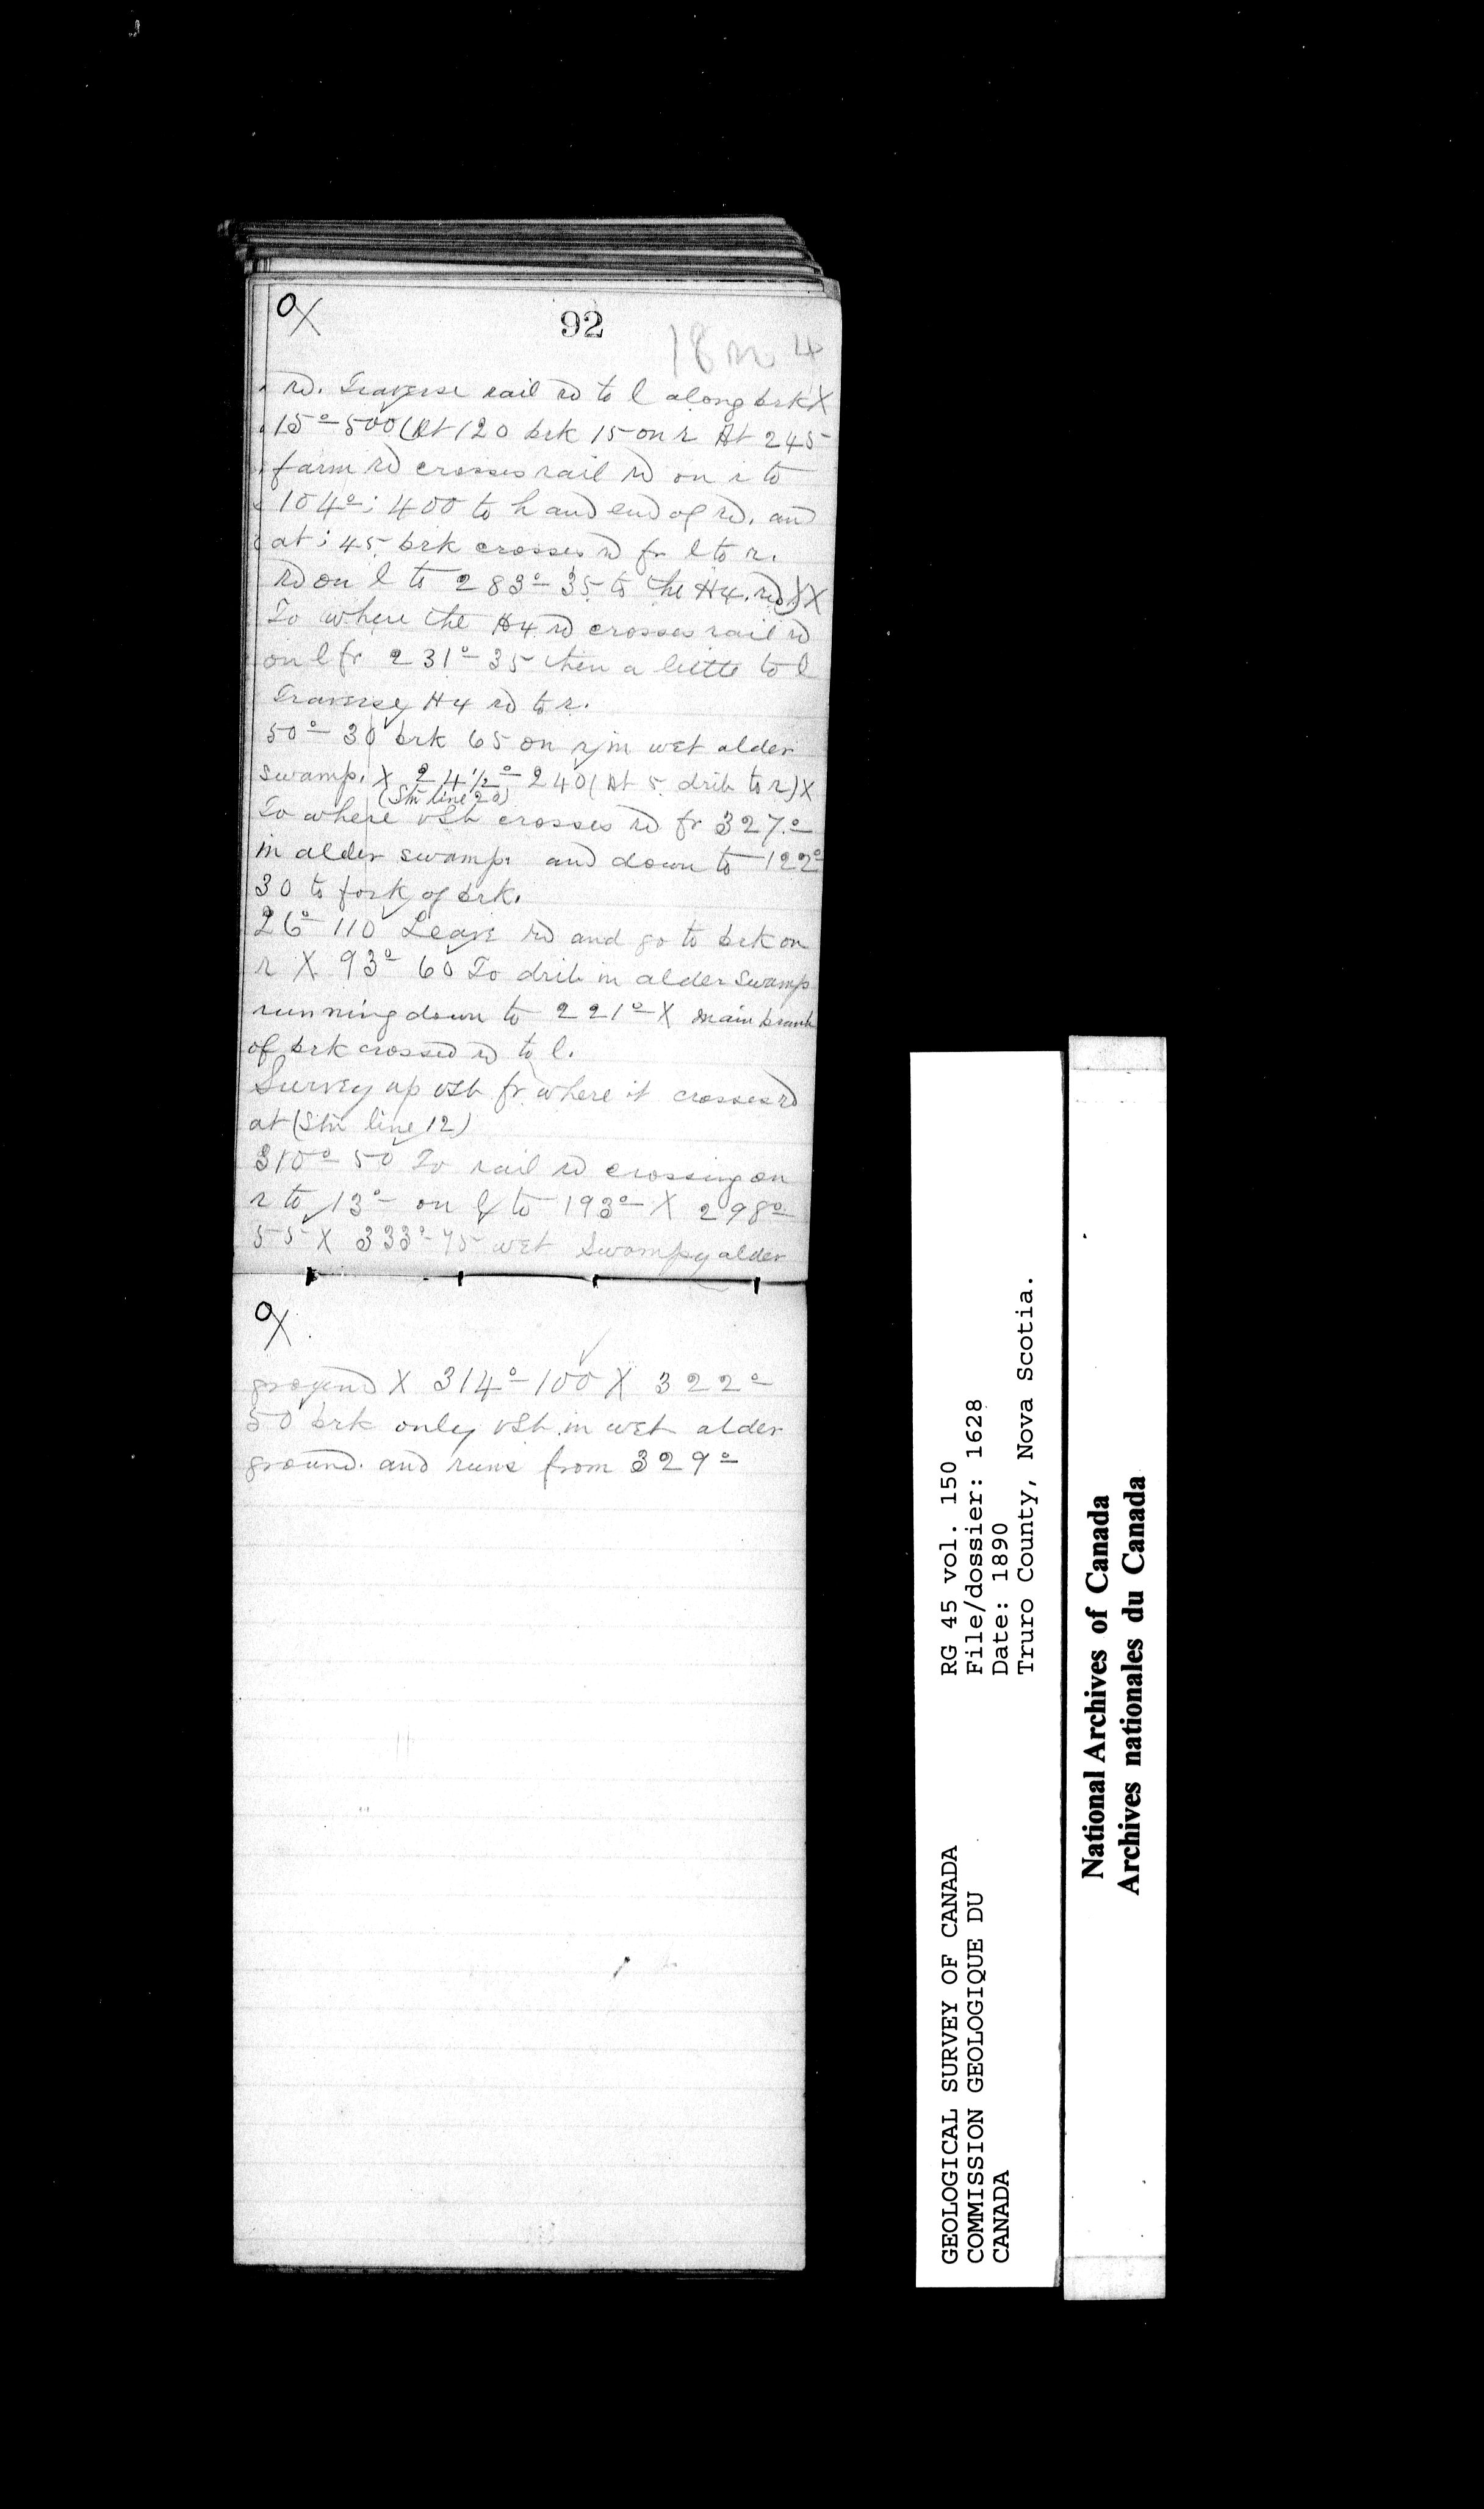 OX
92
18 m 4
rd. Traverse rail rd to l along brk X
15°-500 (At 120 brk 15 on r At 245
farm rd crosses rail rd on r to
104°: 400 to h and end of rd. and
at: 45. brk crosses rd fr l to r.
rd on l to 283°-35 to the H4. rd) X
To where the H4 rd crosses rail rd
on l fr 231°-35 then a little to l
Traverse H4 rd to r.
50°-30 brk 65 on r in wet alder
swamp. X 24½°-240 (At 5. drib to r) X
(Stn line 20)
To where vsb crosses rd fr 327.°
in alder swamp. and down to 122°
30 to fork of brk.
26°-110 Leave rd and go to brk on
r X 93°-60 To drib in alder swamp
running down to 221°-X main branch
of brk crossed rd to l.
Survey up vsb fr where it crosses rd
at (Stn line 12)
310°-50 To rail rd crossing on
r to 13°- on l to 193°-X 298°
55 X 333°-75 wet swampy alder
OX
ground X 314°-100 X 322°-
50 brk only vsb in wet alder
ground. and runs from 329°-
RG 45 vol. 150
File/dossier: 1628
Date: 1890
Truro County, Nova Scotia.
GEOLOGICAL SURVEY OF CANADA
COMMISSION GEOLOGIQUE DU
CANADA
National Archives of Canada
Archives nationales du Canada